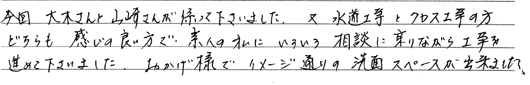 今回 大木さんと山崎さんが帰って下さいました. 又 水道工事とクロス工事の方
どちらも 感じの良い方で. 素人の私に いろいろ 相談に乗りながら工事を
進めて下さいました. おかげ様で イメージ通りの 洗面スペースが出来ました.